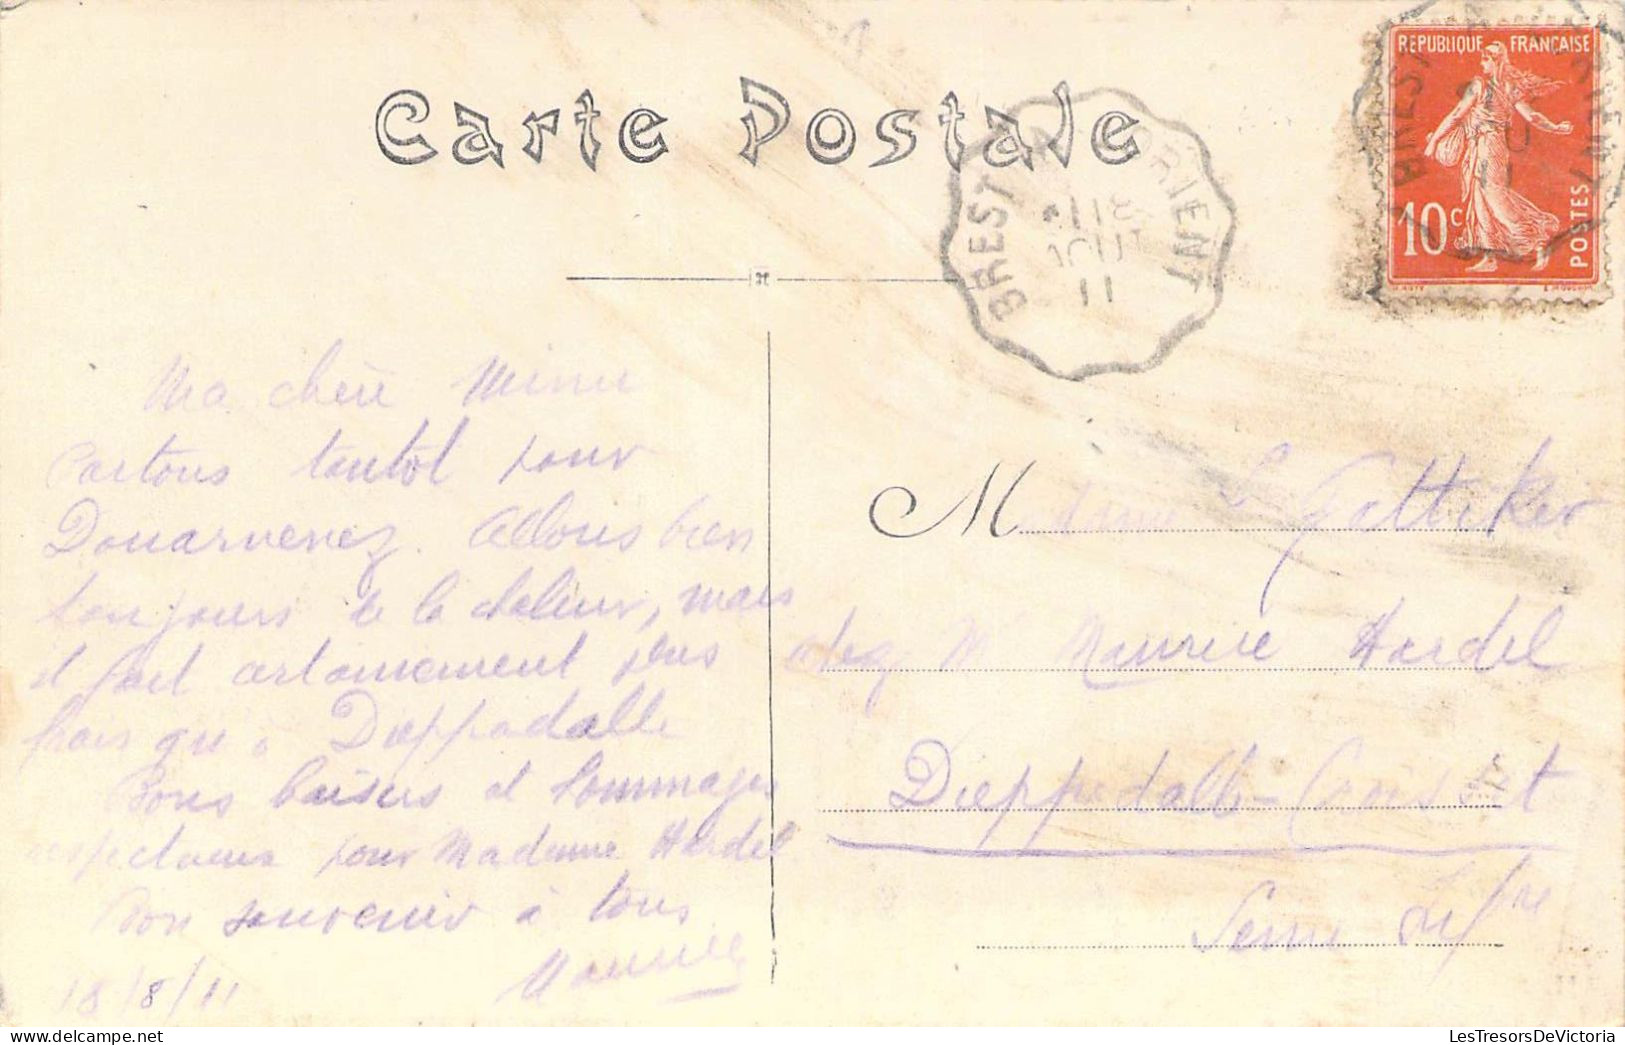 Carte Postale
REPUBLIQUE FRANÇAISE
10c
POSTES
BREST LORIENT
18
AOUT
11
Ma chère Mimi
Partons tantôt pour
Douarnenez. Allons bien
toujours de la chaleur, mais
il fait certainement plus
frais qu'à Dieppedalle
Bons baisers et hommages
respectueux pour Madame Hardel.
Bon souvenir à tous
Maurice
18/8/11
Madame L Gottiker
chez Mr Maurice Hardel
Dieppedalle-Croisset
Seine Infre
LesTresorsDeVictoria